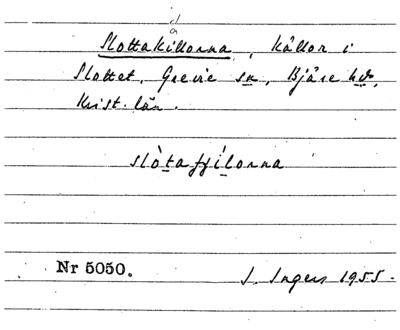 å
Slottakillorna, källor i
Slottet, Grevie sn, Bjäre hd,
Krist. län.
slòtafjílorna
Nr 5050.
I. Ingers 1955.